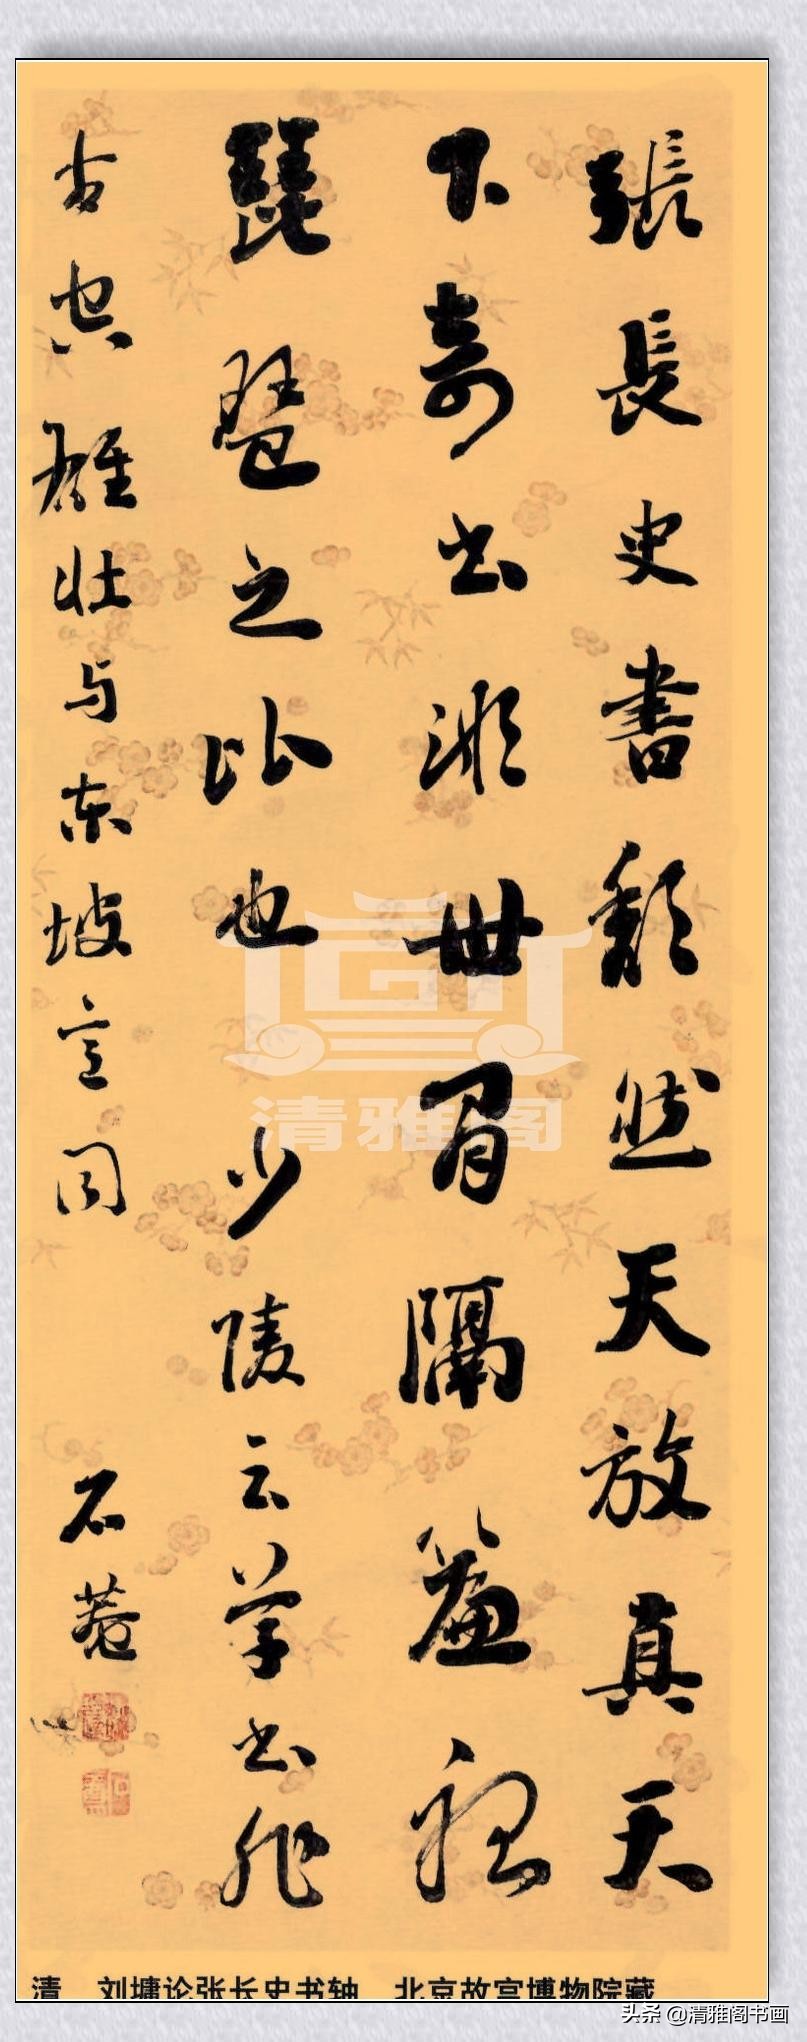 張長史書頹然天放真天
下奇書非世間隔簾聽
琵琶之比也少陵云草書非
古空雄壯与東坡意同
石菴
清雅阁
清 刘墉论张长史书轴 北京故宫博物院藏
头条 @清雅阁书画